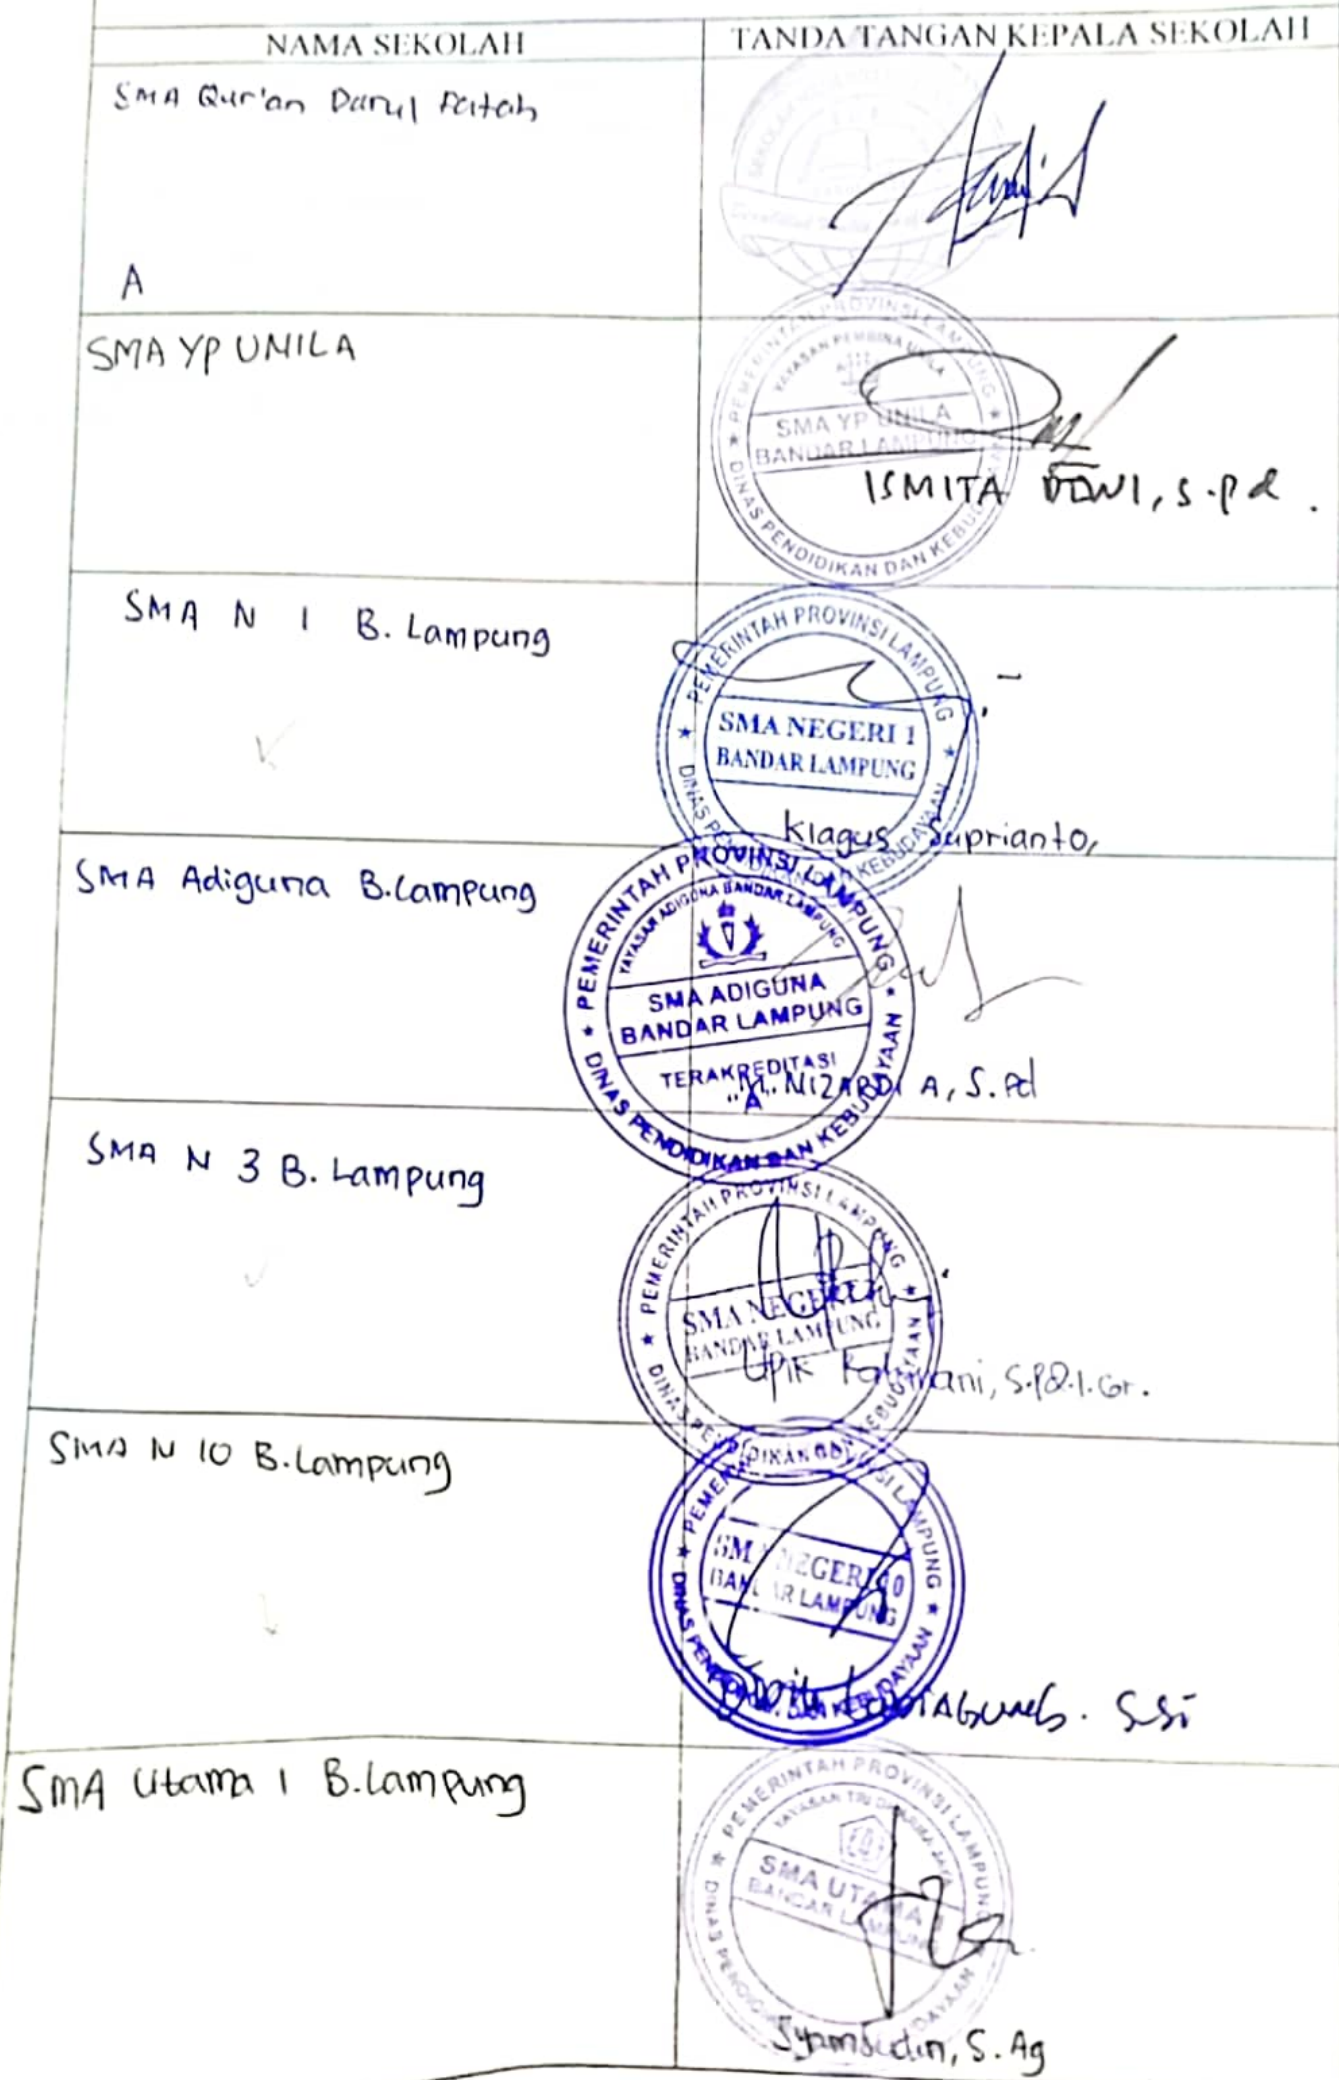 NAMA SEKOLAH
TANDA TANGAN KEPALA SEKOLAH
SMA Qur'an Darul Fatah
A
SMA YP UNILA
PEMERINTAH PROVINSI LAMPUNG
YAYASAN PEMBINA UNILA
SMA YP UNILA
BANDAR LAMPUNG
DINAS PENDIDIKAN DAN KEBUD
ISMITA DEWI, S.Pd.
SMA N 1 B. Lampung
PEMERINTAH PROVINSI LAMPUNG
SMA NEGERI 1
BANDAR LAMPUNG
DINAS KEBUDAYAAN
Kiagus Suprianto,
SMA Adiguna B.Lampung
PEMERINTAH PROVINSI LAMPUNG
YAYASAN ADIGUNA BANDAR LAMPUNG
SMA ADIGUNA
BANDAR LAMPUNG
TERAKREDITASI
"A"
DINAS PENDIDIKAN DAN KEBUDAYAAN
M. NIZARDI A, S.Pd
SMA N 3 B. Lampung
PEMERINTAH PROVINSI LAMPUNG
SMA NEGERI
BANDAR LAMPUNG
DINAS PENDIDIKAN DAN KEBUDAYAAN
Upik
SMA N 10 B.Lampung
LAMPUNG
SMA NEGERI 10
BANDAR LAMPUNG
DINAS DAN KEBUDAYAAN
S.Si
SMA Utama 1 B.Lampung
PEMERINTAH PROVINSI LAMPUNG
SMA UTAMA 1
BANDAR LAMPUNG
Syamsudin, S.Ag